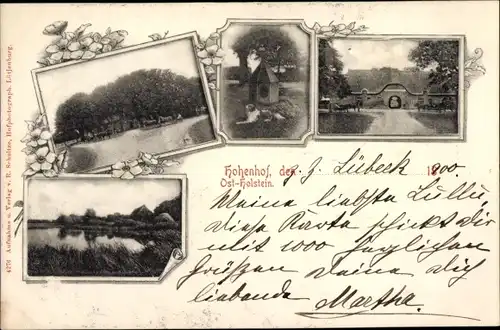 4776 Aufnahme u. Verlag v. R. Schultze, Hofphotograph. Lütjenburg.
Hohenhof, den z. Z. Lübeck 1900.
Ost-Holstein.
Meine liebste Lullu,
diese Karte schickt dir
mit 1000
Grüßen Deine Dich
liebende Martha.